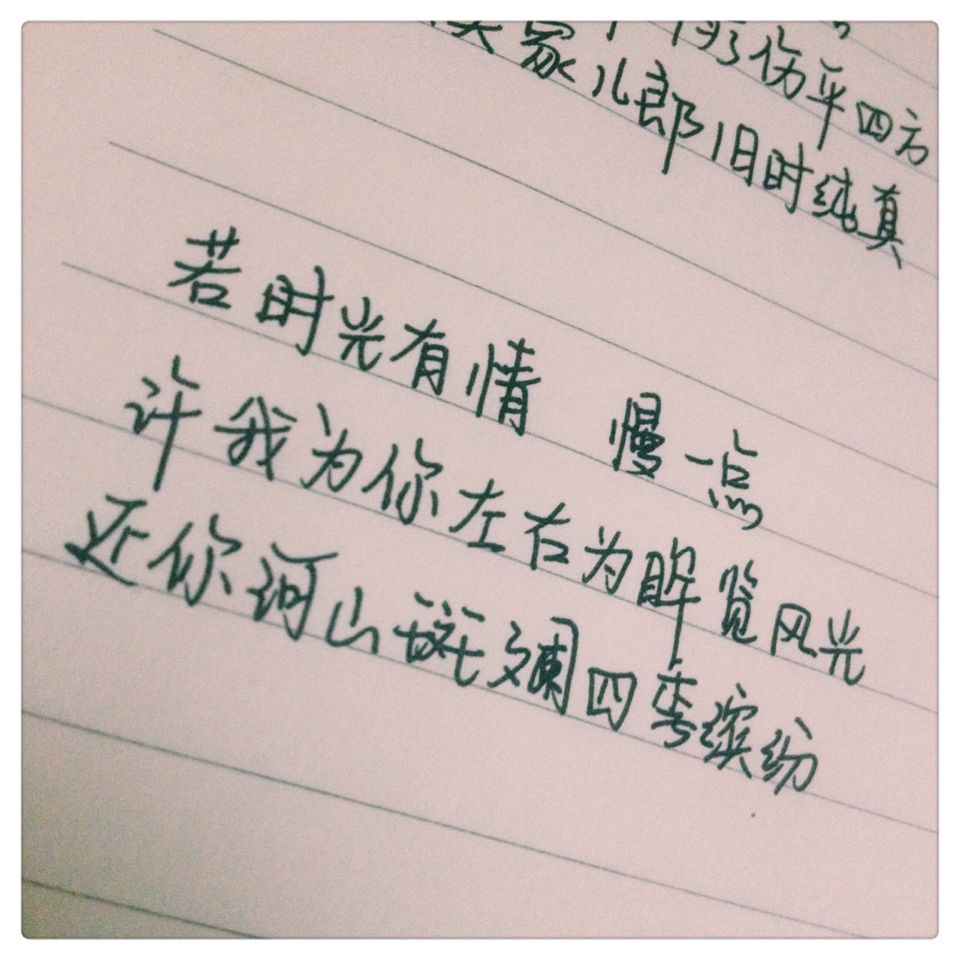 伤平四方
家儿郎旧时纯真
若时光有情 慢一点
许我为你左右为眸览风光
还你河山斑斓四季缤纷